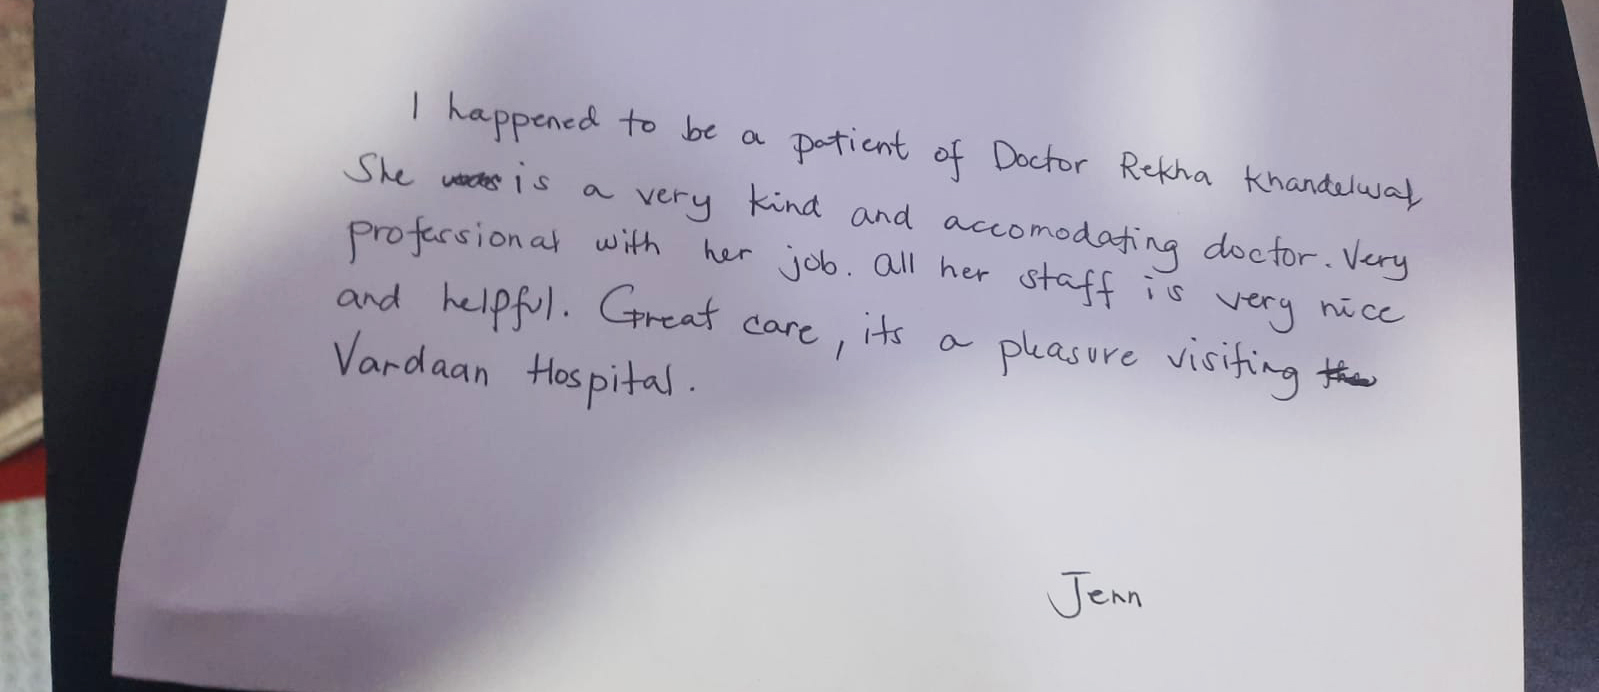 I happened to be a patient of Doctor Rekha Khandelwal
She is a very kind and accomodating doctor. Very
professional with her job. All her staff is very nice
and helpful. Great care, its a pleasure visiting the
Vardaan Hospital.
Jenn